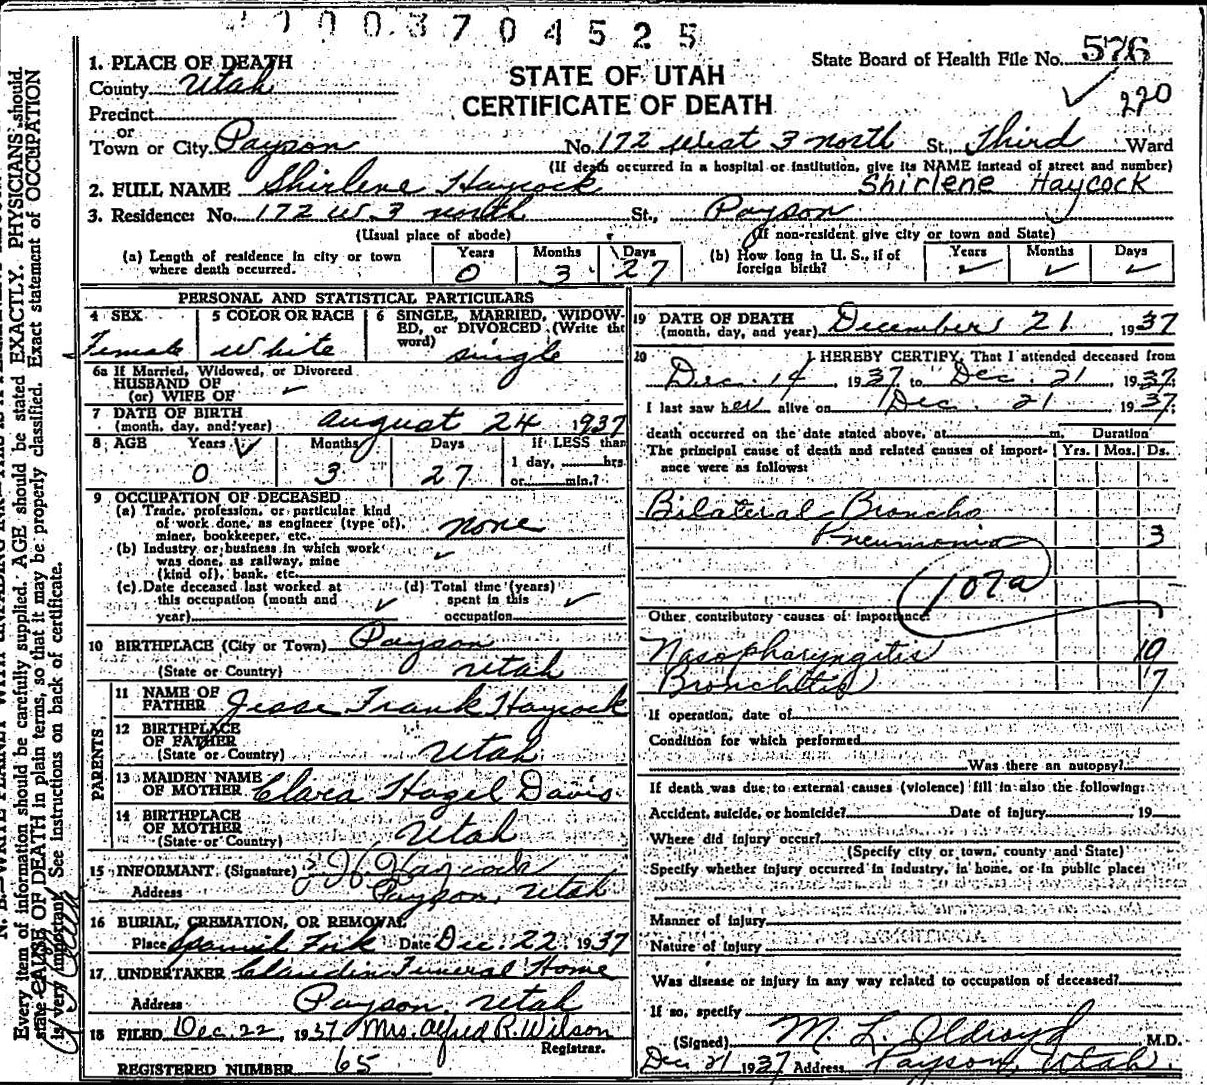 003704525
State Board of Health File No. 576
220
STATE OF UTAH
CERTIFICATE OF DEATH
1. PLACE OF DEATH
County Utah
Precinct
or
Town or City Payson No. 172 West 3 north St., Third Ward
(If death occurred in a hospital or institution, give its NAME instead of street and number)
2. FULL NAME Shirlene Haycock Shirlene Haycock
3. Residence: No. 172 W. 3 north St., Payson
(Usual place of abode) (If non-resident give city or town and State)
(a) Length of residence in city or town where death occurred. Years 0 Months 3 Days 27
(b) How long in U. S., if of foreign birth? Years ✓ Months ✓ Days ✓
PERSONAL AND STATISTICAL PARTICULARS
4 SEX Female
5 COLOR OR RACE White
6 SINGLE, MARRIED, WIDOWED, or DIVORCED (Write the word) single
6a If Married, Widowed, or Divorced
HUSBAND OF
(or) WIFE OF ✓
7 DATE OF BIRTH
(month, day, and year) August 24 1937
8 AGE Years 0 Months 3 Days 27 If LESS than
1 day, hrs.
or min.?
9 OCCUPATION OF DECEASED
(a) Trade, profession, or particular kind
of work done, as engineer (type of),
miner, bookkeeper, etc. none
(b) Industry or business in which work
was done, as railway, mine
(kind of), bank, etc. ✓
(c) Date deceased last worked at
this occupation (month and
year) ✓
(d) Total time (years)
spent in this
occupation ✓
10 BIRTHPLACE (City or Town) Payson
(State or Country) Utah
PARENTS
11 NAME OF
FATHER Jesse Frank Haycock
12 BIRTHPLACE
OF FATHER
(State or Country) Utah
13 MAIDEN NAME
OF MOTHER Clara Hazel Davis
14 BIRTHPLACE
OF MOTHER
(State or Country) Utah
15 INFORMANT (Signature) Haycock
Address Payson, Utah
16 BURIAL, CREMATION, OR REMOVAL
Place Spanish Fork Date Dec. 22 1937
17 UNDERTAKER Claudin Funeral Home
Address Payson, Utah
18 FILED Dec. 22, 1937 Mrs. Alfred R. Wilson
Registrar.
REGISTERED NUMBER 65
19 DATE OF DEATH
(month, day, and year) December 21 1937
20 I HEREBY CERTIFY, That I attended deceased from
Dec. 14, 1937 to Dec. 21, 1937.
I last saw her alive on Dec. 21 1937.
death occurred on the date stated above, at m. Duration
The principal cause of death and related causes of importance were as follows: Yrs. Mos. Ds.
Bilateral Broncho
Pneumonia 3
107a
Other contributory causes of importance:
Nasopharyngitis 10
Bronchitis 7
If operation, date of
Condition for which performed
Was there an autopsy?
If death was due to external causes (violence) fill in also the following:
Accident, suicide, or homicide? Date of injury , 19
Where did injury occur?
(Specify city or town, county and State)
Specify whether injury occurred in industry, in home, or in public place:
Manner of injury
Nature of injury
Was disease or injury in any way related to occupation of deceased?
If so, specify
(Signed) M. L. Oldroyd M.D.
Dec 21 1937 Address Payson, Utah
Every item of information should be carefully supplied. AGE should be stated EXACTLY. PHYSICIANS should
state CAUSE OF DEATH in plain terms, so that it may be properly classified. Exact statement of OCCUPATION
is very important. See instructions on back of certificate.